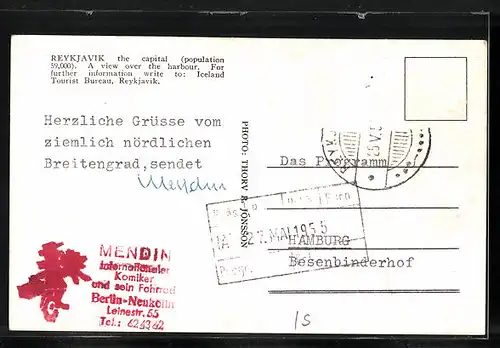 REYKJAVIK the capital (population
59,000). A view over the harbour. For
further information write to: Iceland
Tourist Bureau, Reykjavik.
Herzliche Grüsse vom
ziemlich nördlichen
Breitengrad,sendet
Mendin
PHOTO: THORV R. JÓNSSON
Das Programm
MAI 1955
HAMBURG
Besenbinderhof
MENDIN
internationaler
Komiker
und sein Fahrrad
Berlin-Neukölln
Leinestr. 55
Tel.: 626362
IS